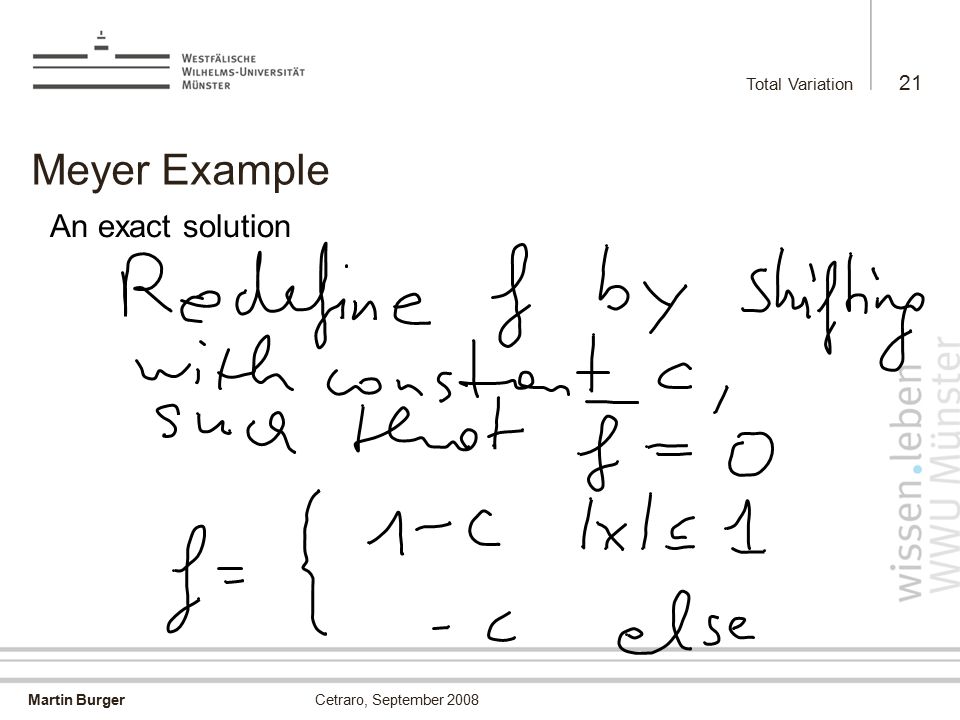 WESTFÄLISCHE
WILHELMS-UNIVERSITÄT
MÜNSTER
Total Variation 21
Meyer Example
An exact solution
Redefine f by shifting
with constant c,
such that f̅ = 0
f = { 1 - c |x| ≤ 1
- c else
wissen.leben
WWU Münster
Martin Burger Cetraro, September 2008